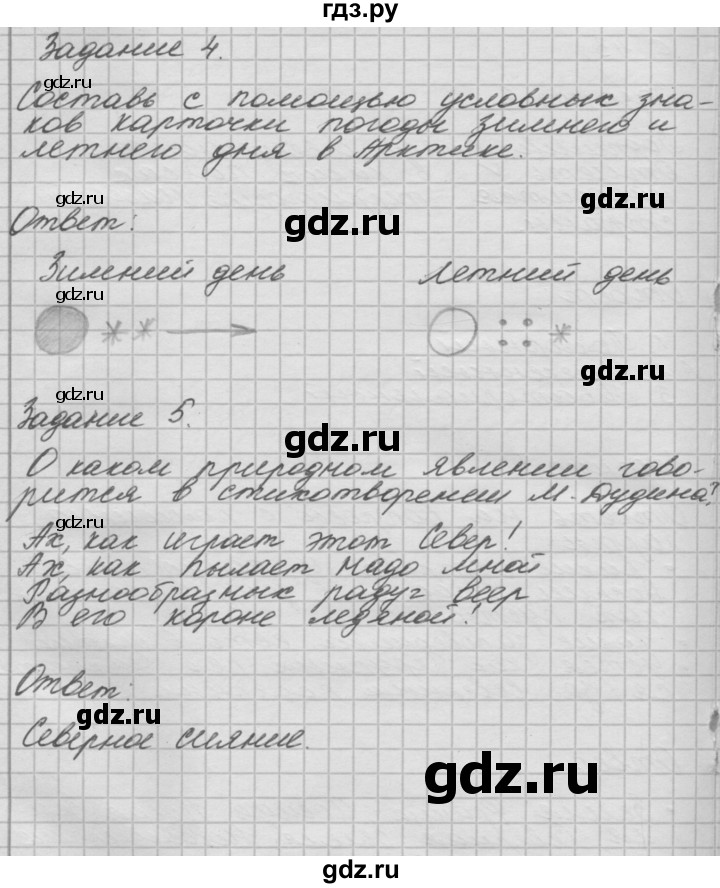 гдз.ру
Задание 4.
gdz.ru
Составь с помощью условных зна-
ков карточки погоды зимнего и
gdz.ru
летнего дня в Арктике.
gdz.ru
gdz.ru
Ответ:
gdz.ru
Зимний день
Летний день
gdz.ru
gdz.ru
gdz.ru
Задание 5.
gdz.ru
О каком природном явлении гово-
рится в стихотворении М. Дудина?
gdz.ru
gdz.ru
Ах, как играет этот Север!
Ах, как пылает надо мной
Разнообразных радуг веер
gdz.ru
В его короне ледяной!
gdz.ru
Ответ:
gdz.ru
Северное сияние.
gdz.ru
gdz.ru